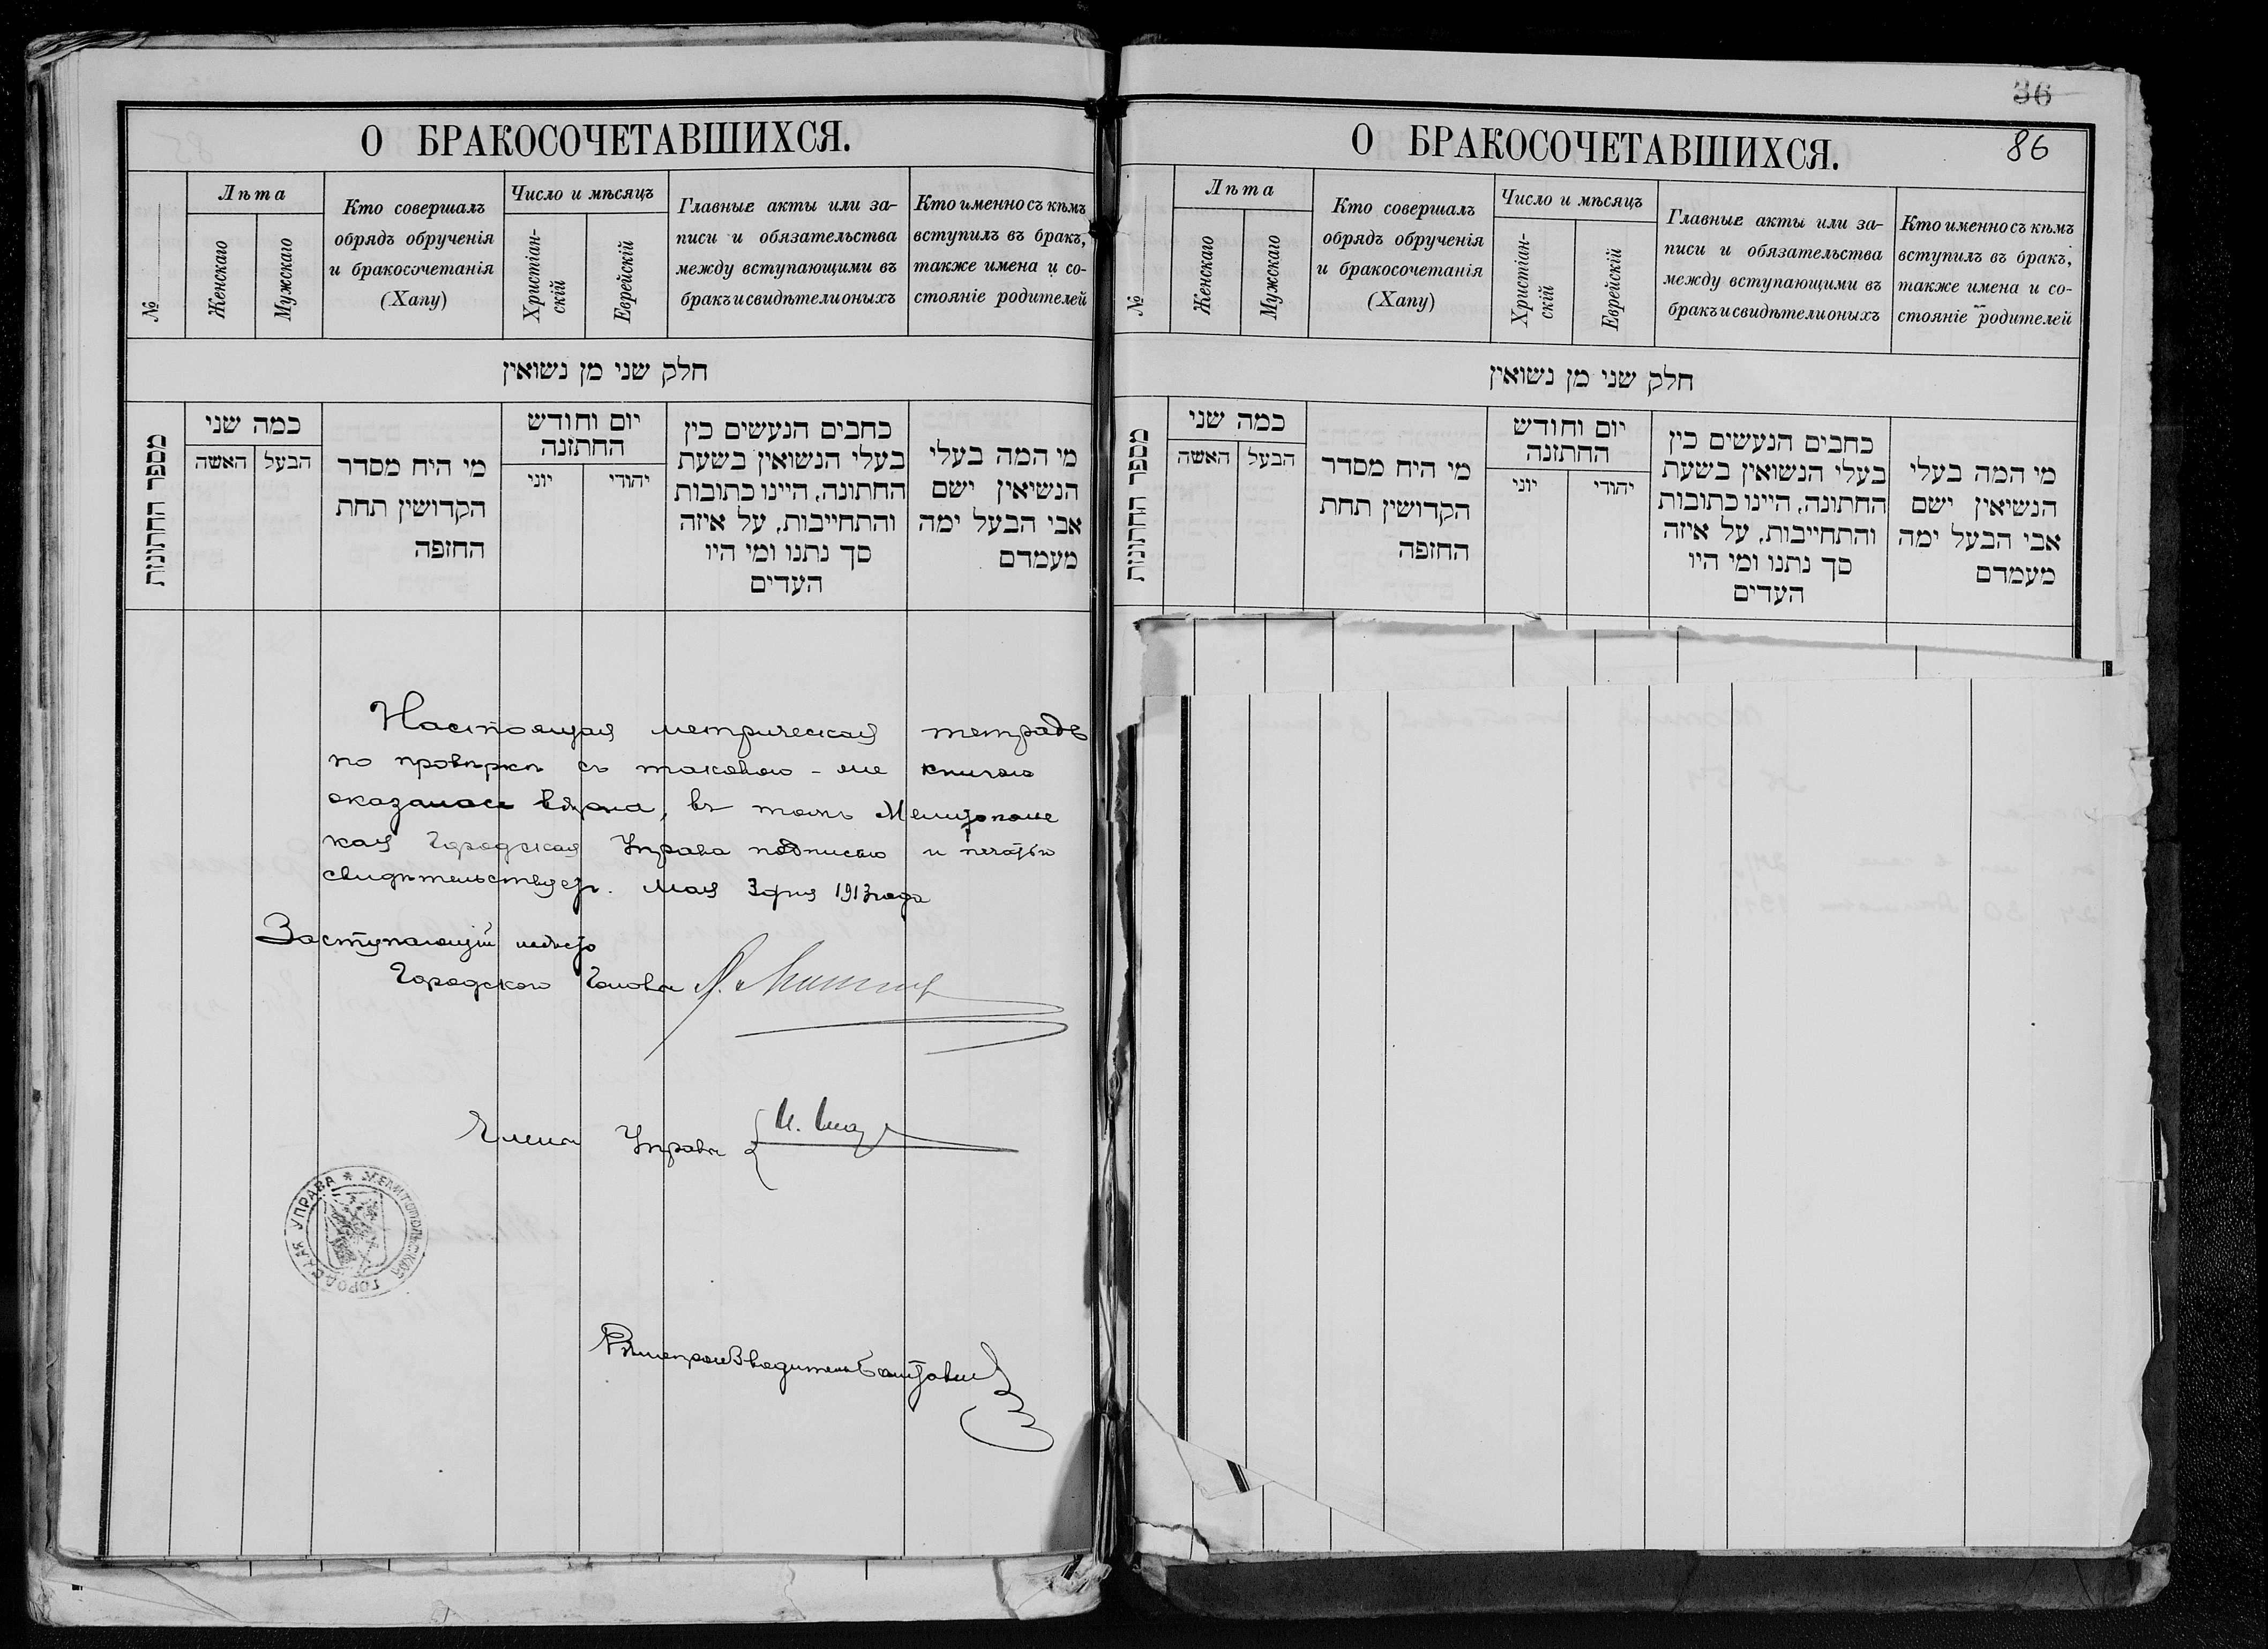 О БРАКОСОЧЕТАВШИХСЯ.
№
Лѣта
Женскаго
Мужскаго
Кто совершалъ
обрядъ обрученія
и бракосочетанія
(Хапу)
Число и мѣсяцъ
Христіан-
скій
Еврейскій
Главные акты или за-
писи и обязательства
между вступающими въ
бракъ и свидѣтели оныхъ
Кто именно съ кѣмъ
вступилъ въ бракъ,
также имена и со-
стояніе родителей
חלק שני מן נשואין
מספר החתונות
כמה שני
האשה
הבעל
מי היח מסדר
הקדושין תחת
החופה
יום וחודש
החתונה
יוני
יהודי
כחבים הנעשים כין
בעלי הנשואין בשעת
החתונה, היינו כתובות
והתחייבות, על איזה
סך נתנו ומי היו
העדים
מי המה בעלי
הנשיאין ישם
אבי הבעל ימה
מעמדם
Настоящая метрическая тетрадь
по провѣркѣ съ таковою-же книгою
оказалась вѣрна, въ томъ Мелитополе
кая Городская Управа подписью и печатью
свидѣтельствуетъ. Мая 3 дня 1913 года
Заступающій мѣсто
Городского Головы
Члены Управы
МЕЛИТОПОЛЬСКАЯ ГОРОДСКАЯ УПРАВА *
36
86
О БРАКОСОЧЕТАВШИХСЯ.
№
Лѣта
Женскаго
Мужскаго
Кто совершалъ
обрядъ обрученія
и бракосочетанія
(Хапу)
Число и мѣсяцъ
Христіан-
скій
Еврейскій
Главные акты или за-
писи и обязательства
между вступающими въ
бракъ и свидѣтели оныхъ
Кто именно съ кѣмъ
вступилъ въ бракъ,
также имена и со-
стояніе родителей
חלק שני מן נשואין
מספר החתונות
כמה שני
האשה
הבעל
מי היח מסדר
הקדושין תחת
החופה
יום וחודש
החתונה
יוני
יהודי
כחבים הנעשים כין
בעלי הנשואין בשעת
החתונה, היינו כתובות
והתחייבות, על איזה
סך נתנו ומי היו
העדים
מי המה בעלי
הנשיאין ישם
אבי הבעל ימה
מעמדם